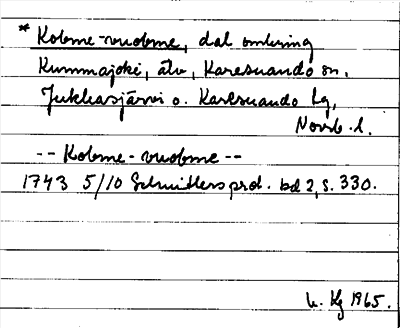 * Kobme-vuobme, dal omkring
Kummajoki, älv, Karesuando sn,
Jukkasjärvi o. Karesuando lg,
Norrb. l.
-- Kobme - vuobme --
1743 5/10 Schnitlers prot. bd 2, s. 330.
U. Kg 1965.